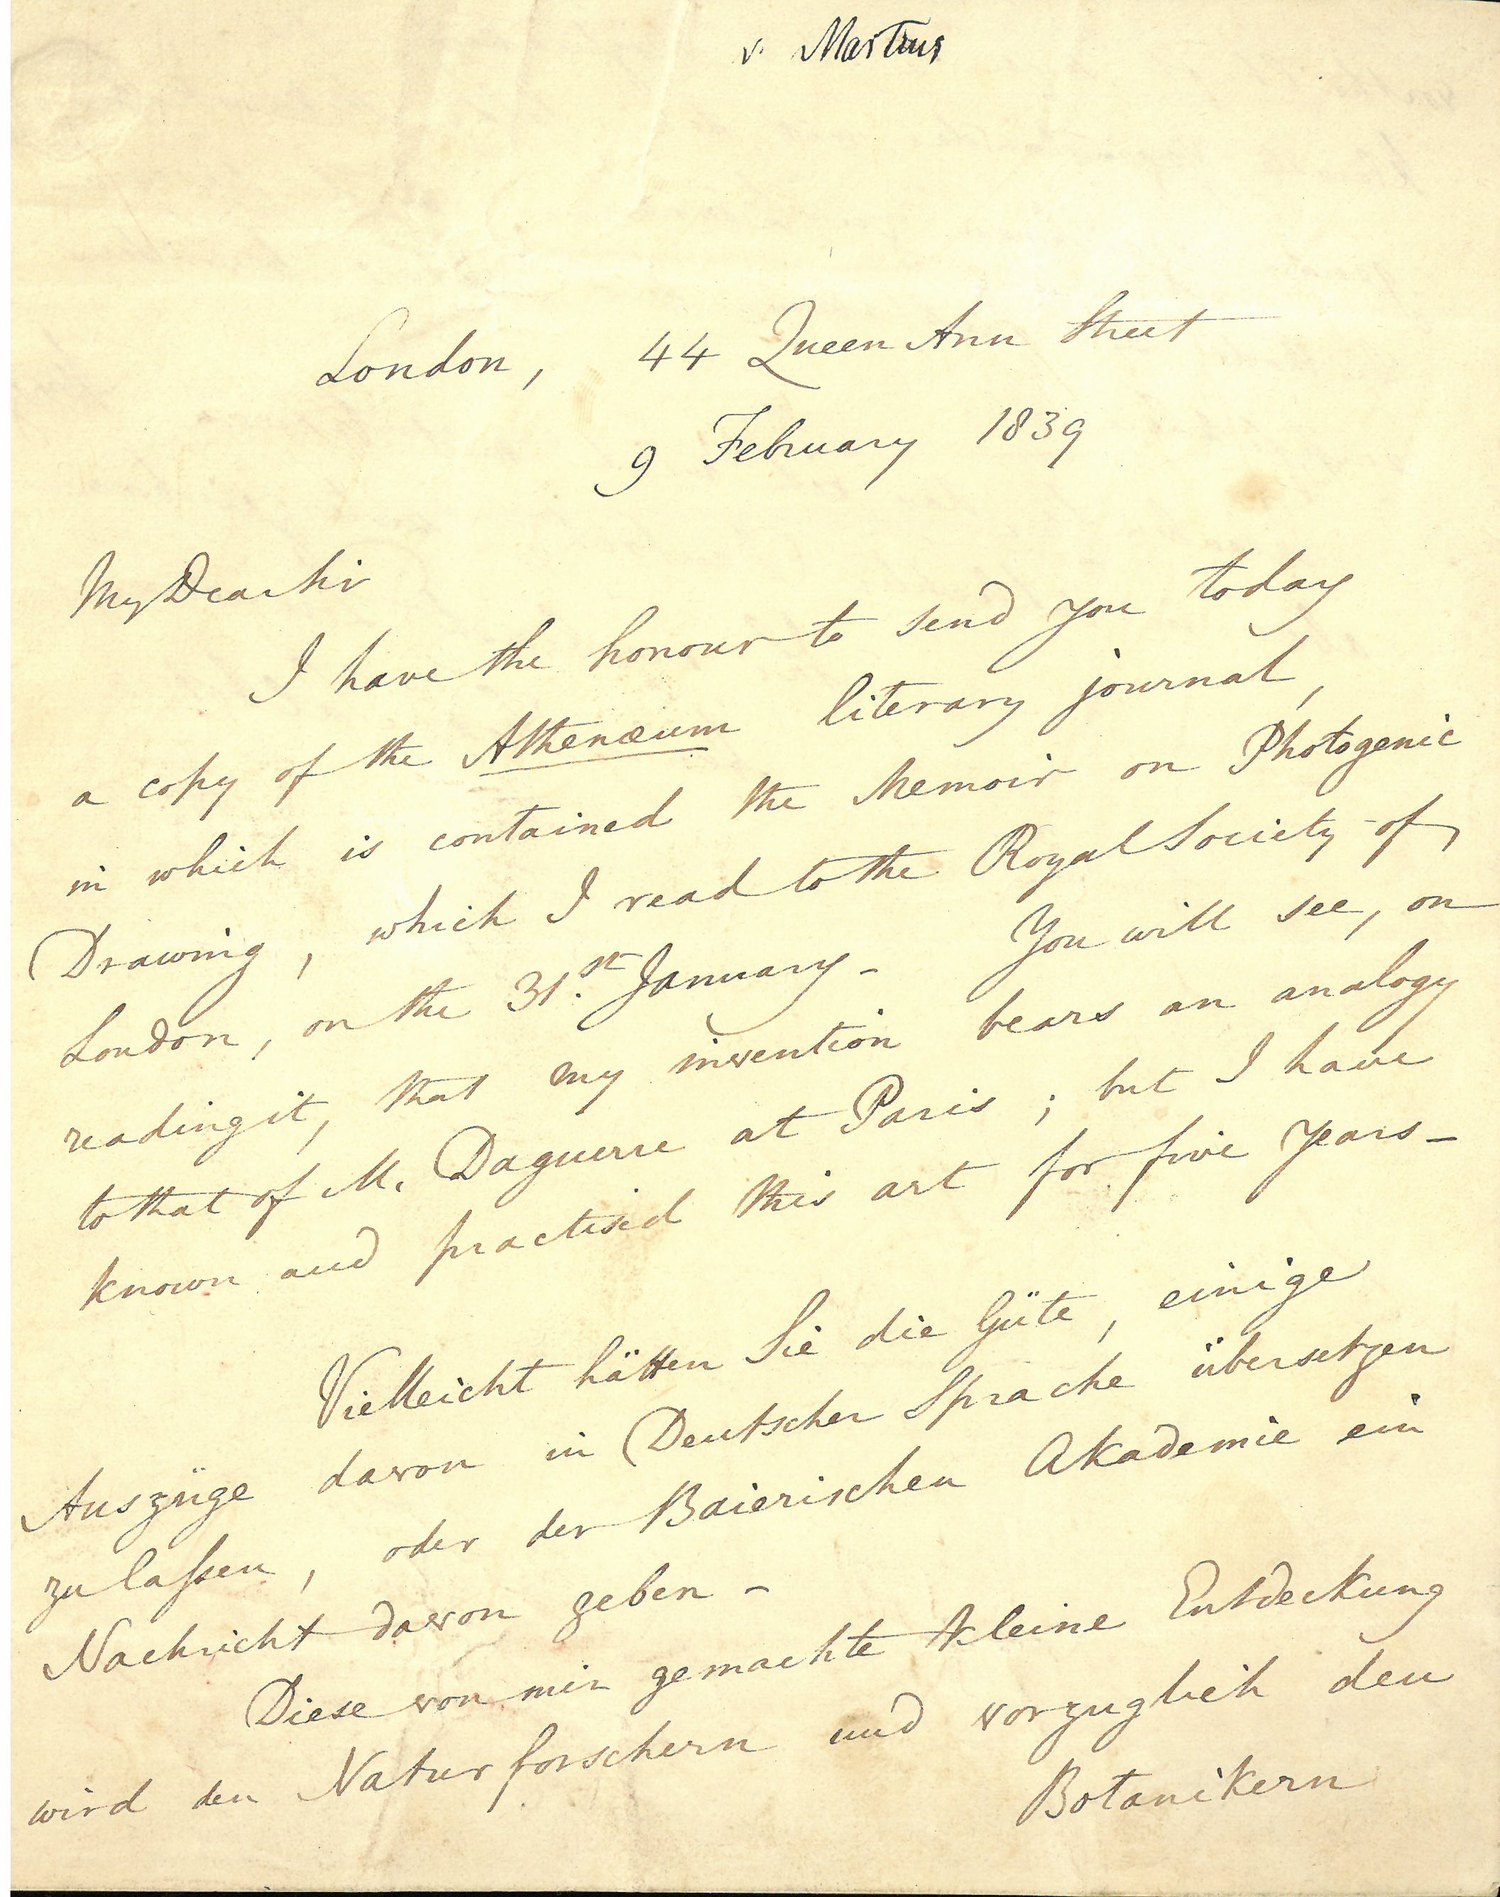 v. Martius
London, 44 Queen Ann Street
9 February 1839
My Dear Sir
I have the honour to send you today
a copy of the Athenæum literary journal,
in which is contained the Memoir on Photogenic
Drawing, which I read to the Royal Society of
London, on the 31.st January - You will see, on
reading it, that my invention bears an analogy
to that of M. Daguerre at Paris; but I have
known and practised this art for five years -
Vielleicht hätten Sie die Güte, einige
Auszüge davon in Deutscher Sprache übersetzen
zu laſsen, oder der Baierischen Akademie ein
Nachricht davon geben -
Diese von mir gemachte kleine Entdeckung
wird den Naturforschern und vorzuglich den
Botanikern